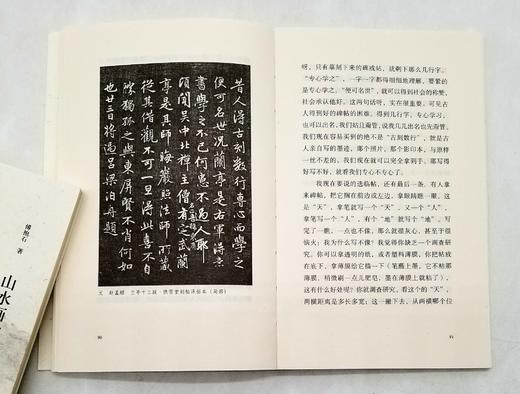 昔人得古刻数行专心而学之
便可名世况兰亭是右军得意
书学之不已何患不过人耶
顷闻吴中北禅主僧有定武兰
亭是其师晦岩照法师所藏
从其借观不可一旦得此喜不自
胜独孤之与东屏贤不肖何如
也廿三日将过吕梁泊舟题
元 赵孟頫 兰亭十三跋·快雪堂刻帖译拓本（局部）
90
呀，只有摹刻下来的碑或帖，就剩下那么几行字。
“专心学之”，一字一字都得细细地理解，要紧的
是专心学之。“便可名世”，就可以得到社会的称赞，
社会承认他好。这两句话呀，实在很重要。可见古
人得到好的碑帖的困难。他得到几行，专心学习，
也可以出名，我们姑且甭管，说我几儿出名也先甭管。
我们现在容易买到的绝不是“古刻数行”，就是古
人亲自写的墨迹，那个照片，那个影印本，与原样
一丝不差的。我们现在就可以完全拿到手，那写得
好写不好，就看我们专心不专心了。
我现在要说的选临帖，还有最后一条。有人拿
来碑帖，把它搁在前方或左边，拿眼睛瞧一眼。这
是“天”，拿笔写一个“天”，又看一眼是“人”，
拿笔写一个“人”，有个“地”就写个“地”。写
完了一瞧，一点也不像，那么就很灰心，甚至于很
恼火：我为什么写不像？我觉得你缺乏一个调查研
究。你可以拿透明的纸，或者塑料薄膜，你把帖放
在底下，拿薄膜给它描一下（笔蘸上墨，它不粘那
薄膜，稍微刷一点儿肥皂，墨在薄膜上就粘了），
这有什么好处呢？你就调查研究，看这个的“天”，
两横距离是多长多宽；这一撇下去，从两横哪个位
91
傅抱石 著
山水画